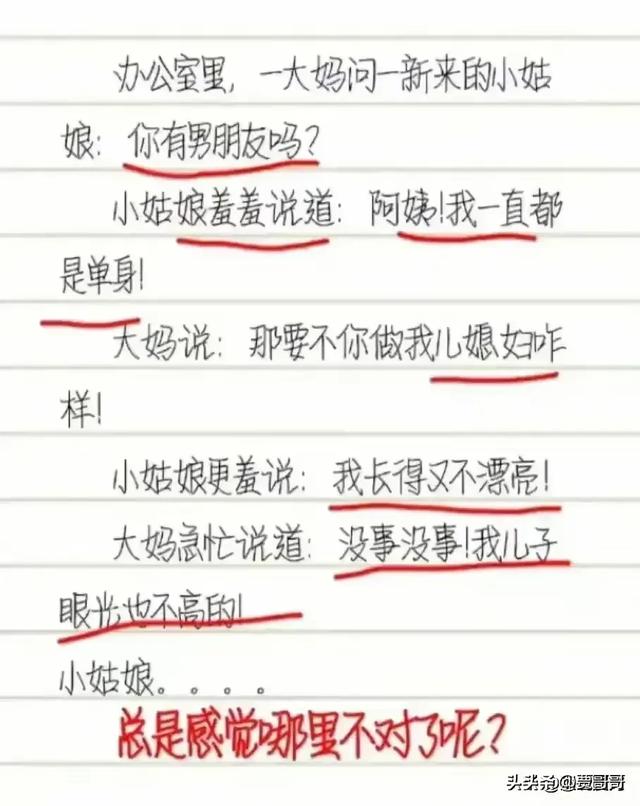 办公室里，一大妈问一新来的小姑
娘：你有男朋友吗？
小姑娘羞羞说道：阿姨！我一直都
是单身！
大妈说：那要不你做我儿媳妇咋
样！
小姑娘更羞说：我长得又不漂亮！
大妈急忙说道：没事没事！我儿子
眼光也不高的！
小姑娘。。。。
总是感觉哪里不对了呢？
头条@贾哥哥